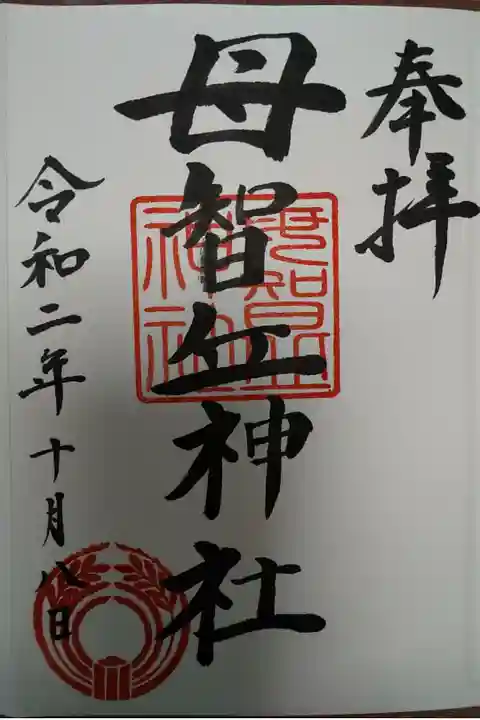 奉拝
母智丘神社
母智丘
神社
令和二年十月八日